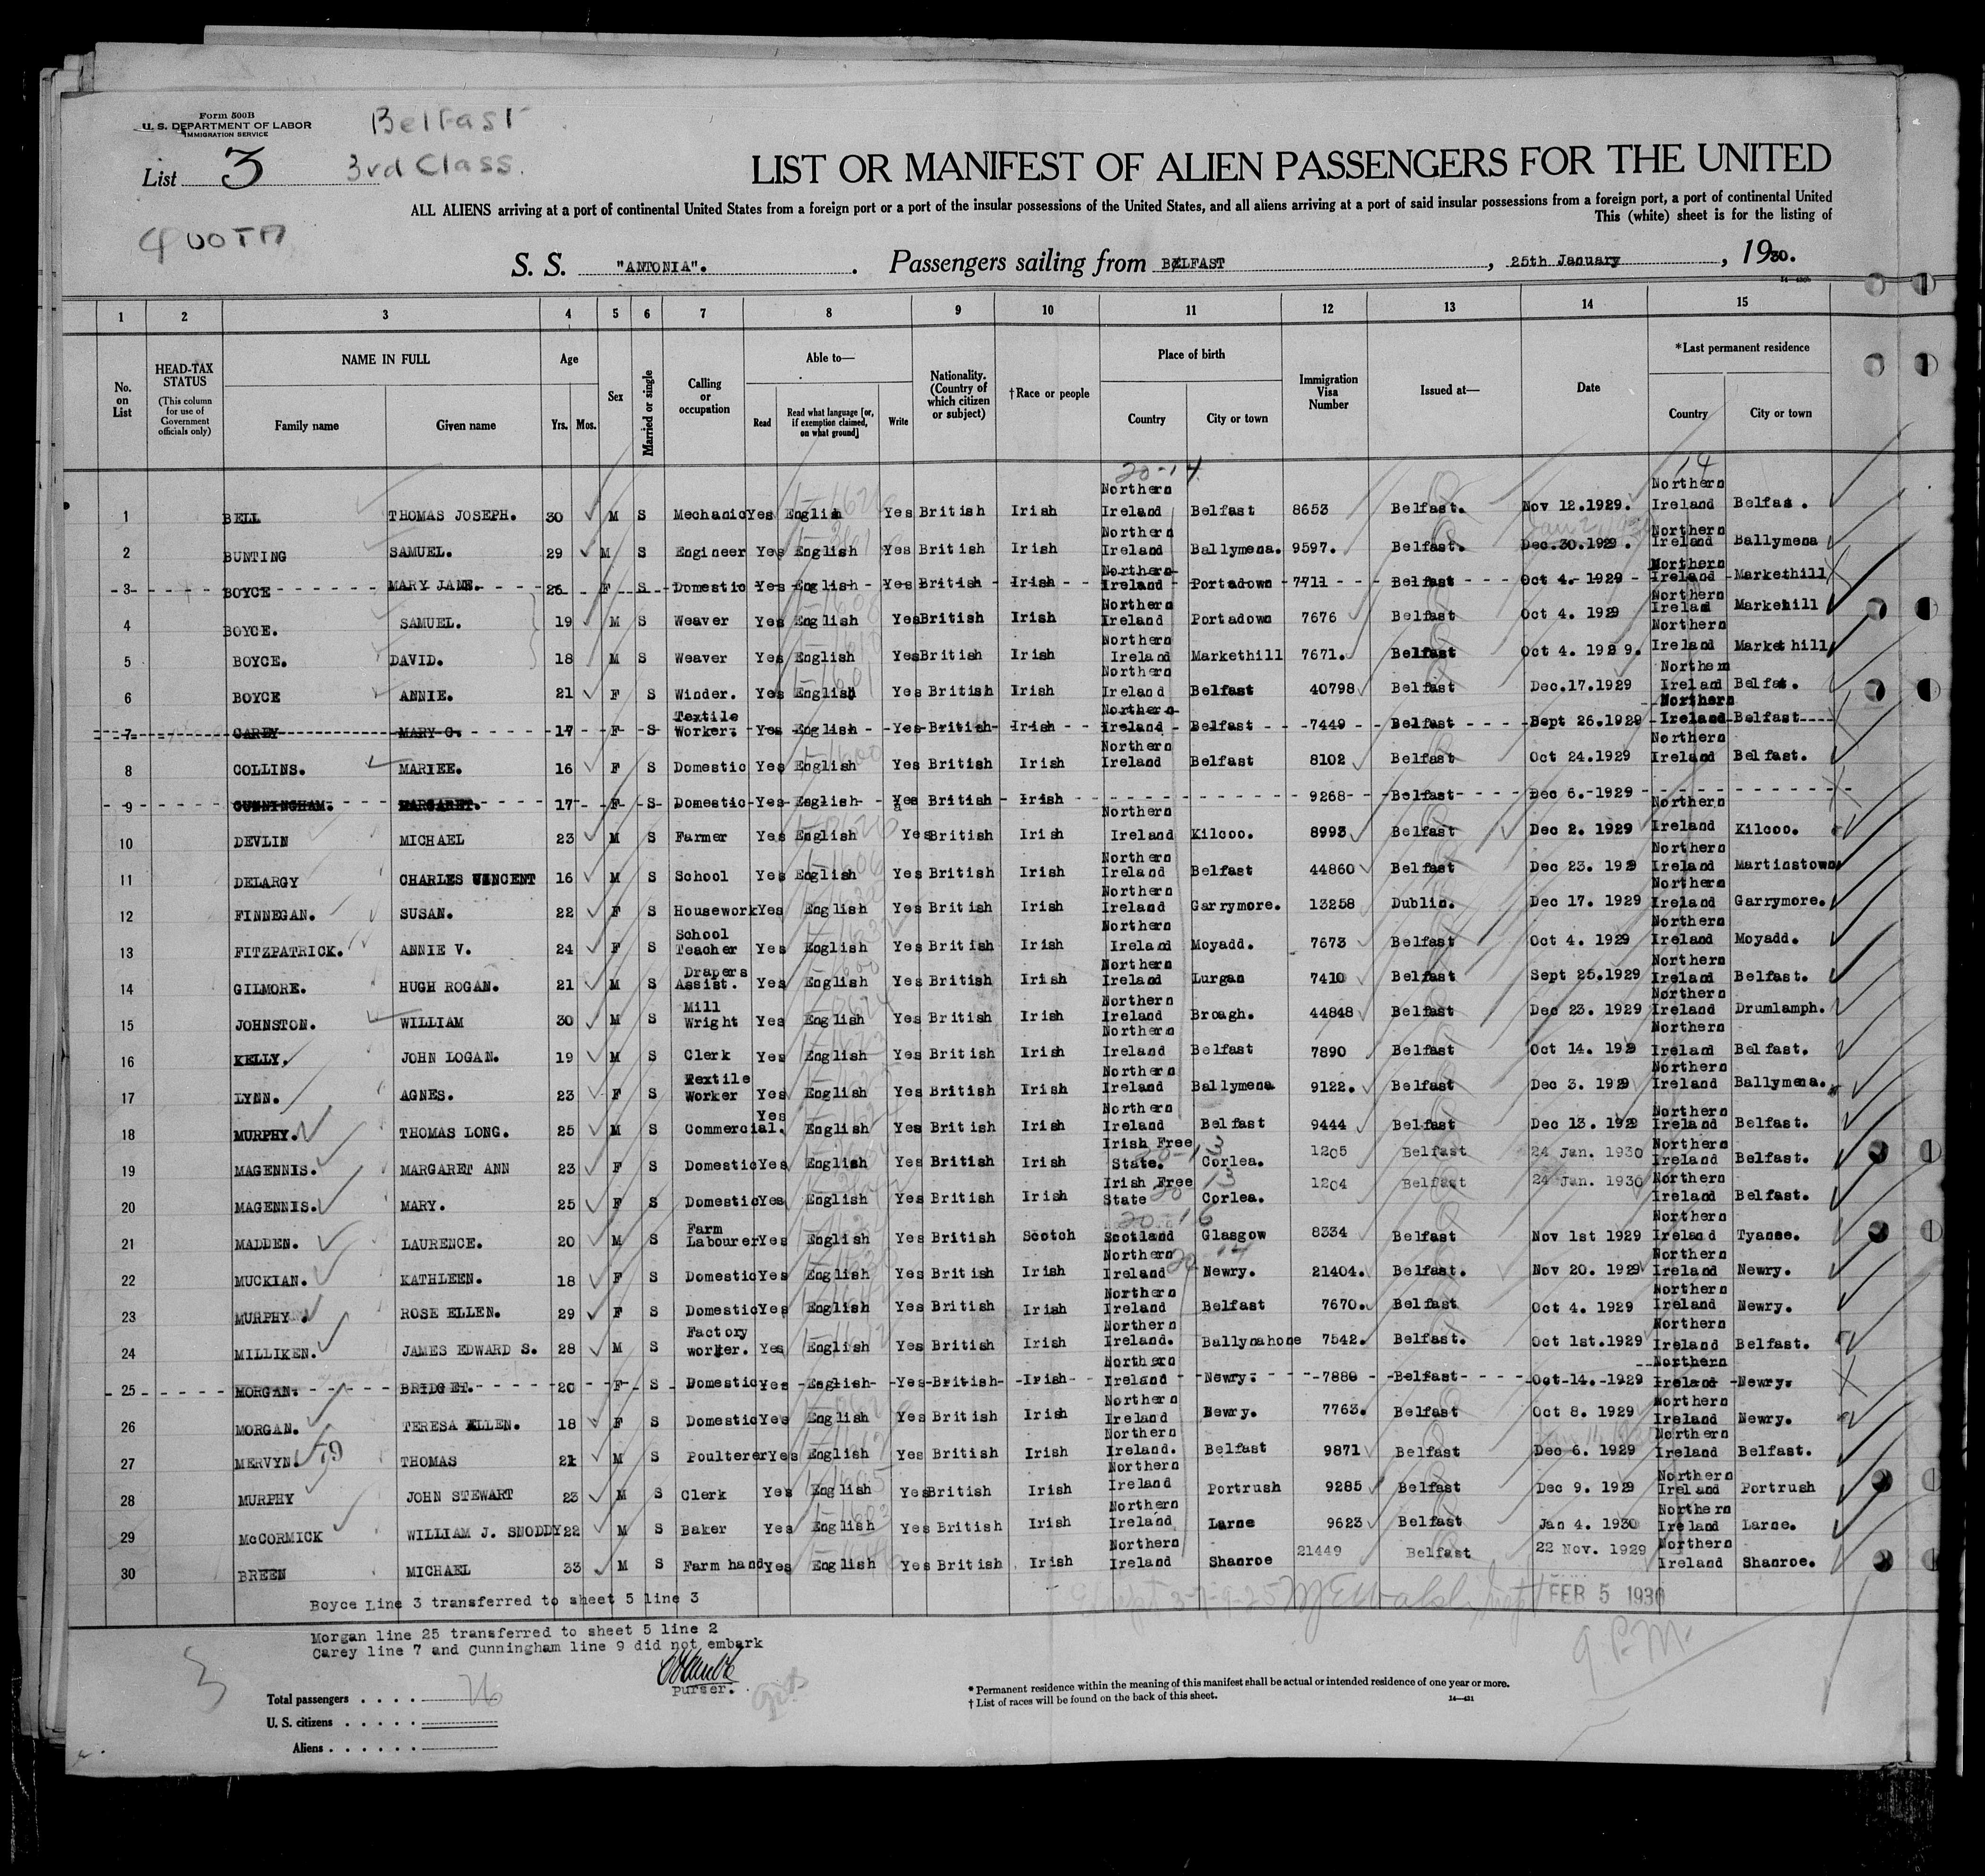 Form 500B
U. S. DEPARTMENT OF LABOR
IMMIGRATION SERVICE
Belfast
List 3
3rd Class.
QUOTA
LIST OR MANIFEST OF ALIEN PASSENGERS FOR THE UNITED
ALL ALIENS arriving at a port of continental United States from a foreign port or a port of the insular possessions of the United States, and all aliens arriving at a port of said insular possessions from a foreign port, a port of continental United
This (white) sheet is for the listing of
S. S. "ANTONIA". Passengers sailing from BELFAST, 25th January, 1930.
1 2 3 4 5 6 7 8 9 10 11 12 13 14 15
No. on List
HEAD-TAX STATUS
(This column for use of Government officials only)
NAME IN FULL
Family name Given name
Age
Yrs. Mos.
Sex
Married or single
Calling or occupation
Able to—
Read
Read what language [or, if exemption claimed, on what ground]
Write
Nationality. (Country of which citizen or subject)
†Race or people
Place of birth
Country City or town
Immigration Visa Number
Issued at—
Date
*Last permanent residence
Country City or town
20-14 14
1 BELL THOMAS JOSEPH. 30 M S Mechanic Yes English Yes British Irish Northern Ireland Belfast 8653 Belfast. Nov 12.1929. Northern Ireland Belfas .
2 BUNTING SAMUEL. 29 M S Engineer Yes English Yes British Irish Northern Ireland Ballymena. 9597. Belfast. Dec.30.1929. Northern Ireland Ballymena
3 BOYCE MARY JANE. 26 F S Domestic Yes English Yes British Irish Northern Ireland Portadown 7711 Belfast Oct 4. 1929 Northern Ireland Markethill
4 BOYCE. SAMUEL. 19 M S Weaver Yes English Yes British Irish Northern Ireland Portadown 7676 Belfast Oct 4. 1929 Northern Ireland Markehill
5 BOYCE. DAVID. 18 M S Weaver Yes English Yes British Irish Northern Ireland Markethill 7671. Belfast Oct 4. 1929. Northern Ireland Markethill
6 BOYCE ANNIE. 21 F S Winder. Yes English Yes British Irish Northern Ireland Belfast 40798 Belfast Dec.17.1929 Northern Ireland Belfas.
7 CAREY MARY C. 17 F S Textile Worker. Yes English Yes British Irish Northern Ireland Belfast 7449 Belfast Sept 26.1929 Northern Ireland Belfast
8 COLLINS. MARIEE. 16 F S Domestic Yes English Yes British Irish Northern Ireland Belfast 8102 Belfast Oct 24.1929 Northern Ireland Belfast.
9 CUNNINGHAM. MARGARET. 17 F S Domestic Yes English Yes British Irish 9268 Belfast Dec 6. 1929
10 DEVLIN MICHAEL 23 M S Farmer Yes English Yes British Irish Northern Ireland Kilcoo. 8993 Belfast Dec 2. 1929 Northern Ireland Kilcoo.
11 DELARGY CHARLES VINCENT 16 M S School Yes English Yes British Irish Northern Ireland Belfast 44860 Belfast Dec 23. 1929 Northern Ireland Martinstown
12 FINNEGAN. SUSAN. 22 F S Housework Yes English Yes British Irish Northern Ireland Garrymore. 13258 Dublin. Dec 17. 1929 Northern Ireland Garrymore.
13 FITZPATRICK. ANNIE V. 24 F S School Teacher Yes English Yes British Irish Northern Ireland Moyadd. 7673 Belfast Oct 4. 1929 Northern Ireland Moyadd.
14 GILMORE. HUGH ROGAN. 21 M S Drapers Assist. Yes English Yes British Irish Northern Ireland Lurgan 7410 Belfast Sept 25.1929 Northern Ireland Belfast.
15 JOHNSTON. WILLIAM 30 M S Mill Wright Yes English Yes British Irish Northern Ireland Broagh. 44848 Belfast Dec 23. 1929 Northern Ireland Drumlamph.
16 KELLY. JOHN LOGAN. 19 M S Clerk Yes English Yes British Irish Northern Ireland Belfast 7890 Belfast Oct 14. 1929 Northern Ireland Belfast.
17 LYNN. AGNES. 23 F S Textile Worker Yes English Yes British Irish Northern Ireland Ballymena 9122. Belfast Dec 3. 1929 Northern Ireland Ballymena.
18 MURPHY. THOMAS LONG. 25 M S Commercial. Yes English Yes British Irish Northern Ireland Belfast 9444 Belfast Dec 13. 1929 Northern Ireland Belfast.
19 MAGENNIS. MARGARET ANN 23 F S Domestic Yes English Yes British Irish Irish Free State. Corlea. 1205 Belfast 24 Jan. 1930 Northern Ireland Belfast.
20 MAGENNIS. MARY. 25 F S Domestic Yes English Yes British Irish Irish Free State Corlea. 1204 Belfast 24 Jan. 1930 Northern Ireland Belfast.
21 MADDEN. LAURENCE. 20 M S Farm Labourer Yes English Yes British Scotch Scotland Glasgow 8334 Belfast Nov 1st 1929 Northern Ireland Tyanee.
22 MUCKIAN. KATHLEEN. 18 F S Domestic Yes English Yes British Irish Northern Ireland Newry. 21404. Belfast. Nov 20. 1929 Northern Ireland Newry.
23 MURPHY. ROSE ELLEN. 29 F S Domestic Yes English Yes British Irish Northern Ireland Belfast 7670. Belfast Oct 4. 1929 Northern Ireland Newry.
24 MILLIKEN. JAMES EDWARD S. 28 M S Factory worker. Yes English Yes British Irish Northern Ireland. Ballynahone 7542. Belfast. Oct 1st.1929 Northern Ireland Belfast.
25 MORGAN. BRIDGET. 20 F S Domestic Yes English Yes British Irish Northern Ireland Newry. 7889 Belfast Oct 14. 1929 Northern Ireland Newry.
26 MORGAN. TERESA ELLEN. 18 F S Domestic Yes English Yes British Irish Northern Ireland Newry. 7763. Belfast Oct 8. 1929 Northern Ireland Newry.
27 MERVYN. 79 THOMAS 21 M S Poulterer Yes English Yes British Irish Northern Ireland. Belfast 9871 Belfast Dec 6. 1929 Northern Ireland Belfast.
28 MURPHY JOHN STEWART 23 M S Clerk Yes English Yes British Irish Northern Ireland Portrush 9285 Belfast Dec 9. 1929 Northern Ireland Portrush
29 McCORMICK WILLIAM J. SNODDY 22 M S Baker Yes English Yes British Irish Northern Ireland Larne 9623 Belfast Jan 4. 1930 Northern Ireland Larne.
30 BREEN MICHAEL 33 M S Farm hand Yes English Yes British Irish Northern Ireland Shanroe 21449 Belfast 22 Nov. 1929 Northern Ireland Shanroe.
Boyce Line 3 transferred to sheet 5 line 3
FEB 5 1930
Morgan line 25 transferred to sheet 5 line 2
Carey line 7 and Cunningham line 9 did not embark
9 P.M.
Purser.
3
Total passengers . . . . 26
U. S. citizens . . . . .
Aliens . . . . . .
* Permanent residence within the meaning of this manifest shall be actual or intended residence of one year or more.
† List of races will be found on the back of this sheet.
14—431